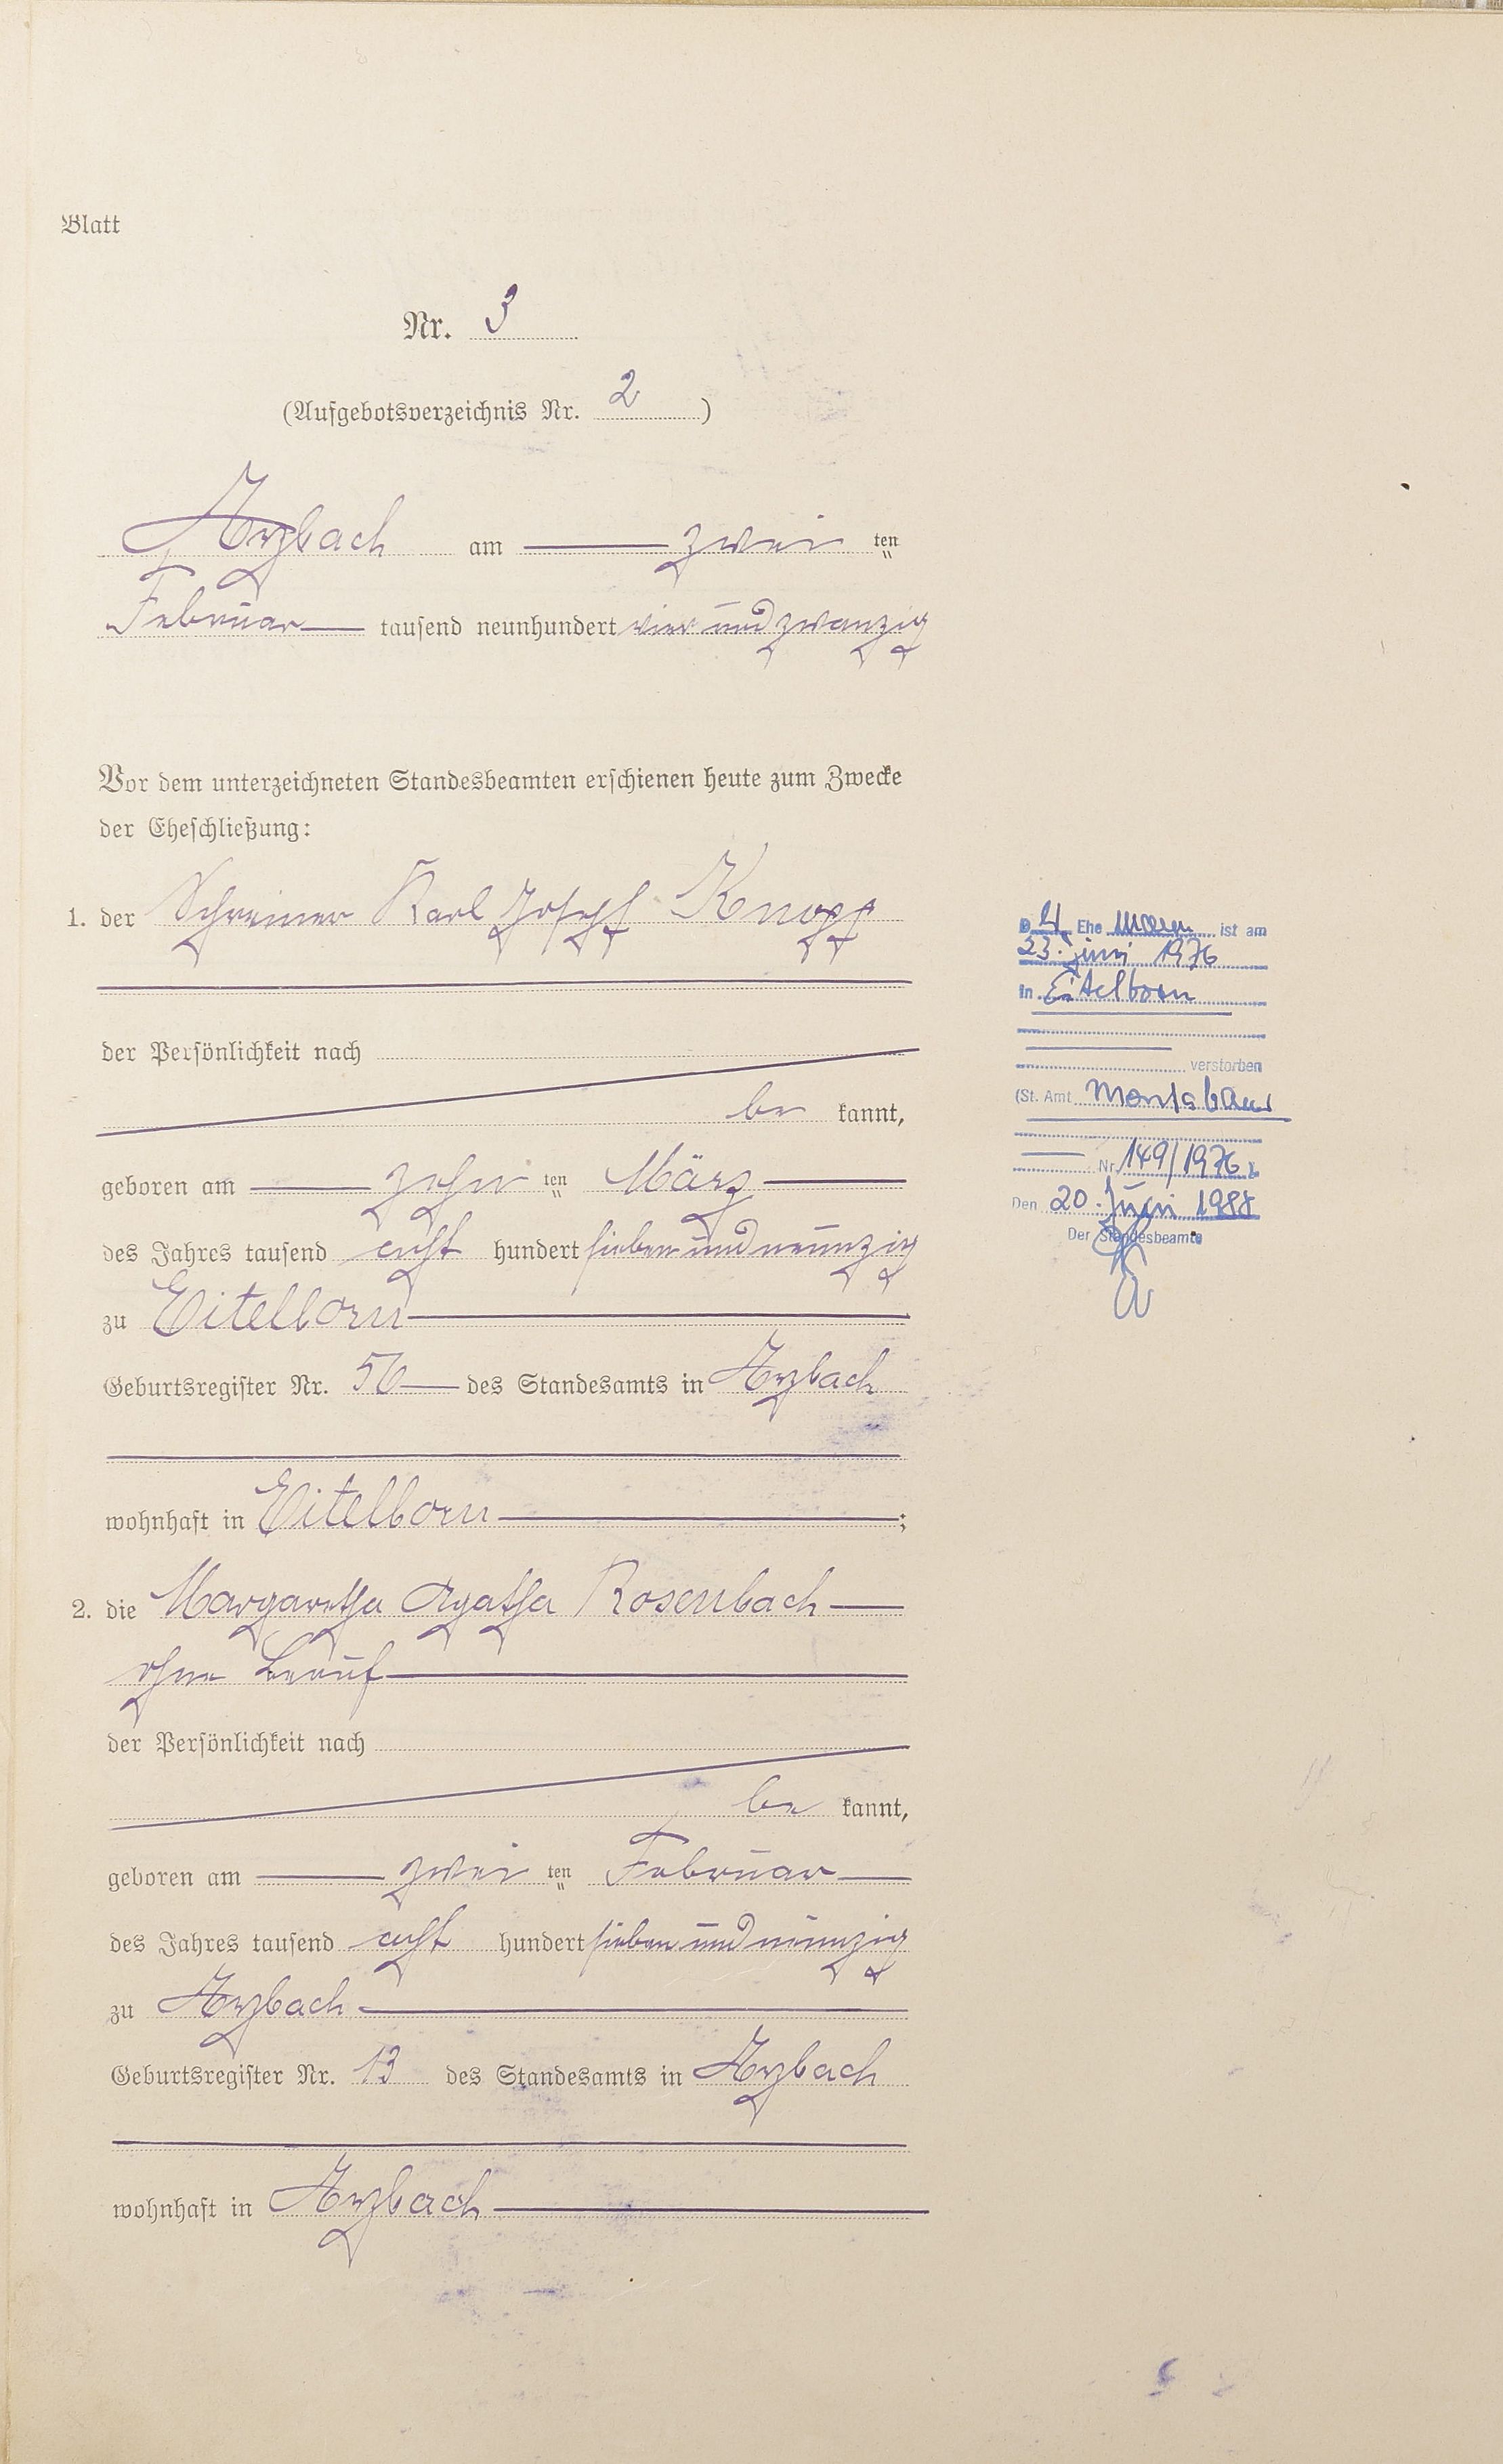 Blatt
Nr. 3
(Aufgebotsverzeichnis Nr. 2)
Arzbach am zwei ten
Februar tausend neunhundert vier und zwanzig
Vor dem unterzeichneten Standesbeamten erschienen heute zum Zwecke
der Eheschließung:
1. der Schreiner Karl Josef Knopp
der Persönlichkeit nach
be kannt,
geboren am zehn ten März
des Jahres tausend acht hundert sieben und neunzig
zu Eitelborn
Geburtsregister Nr. 56 des Standesamts in Arzbach
wohnhaft in Eitelborn;
2. die Margaretha Agatha Rosenbach
ohne Beruf
der Persönlichkeit nach
be kannt,
geboren am zwei ten Februar
des Jahres tausend acht hundert sieben und neunzig
zu Arzbach
Geburtsregister Nr. 13 des Standesamts in Arzbach
wohnhaft in Arzbach
D Ehe ist am
23. Juni 1976
in Eitelborn
verstorben
(St. Amt Montabaur
Nr. 149/1976
Den 20. Juni 1988
Der Standesbeamte